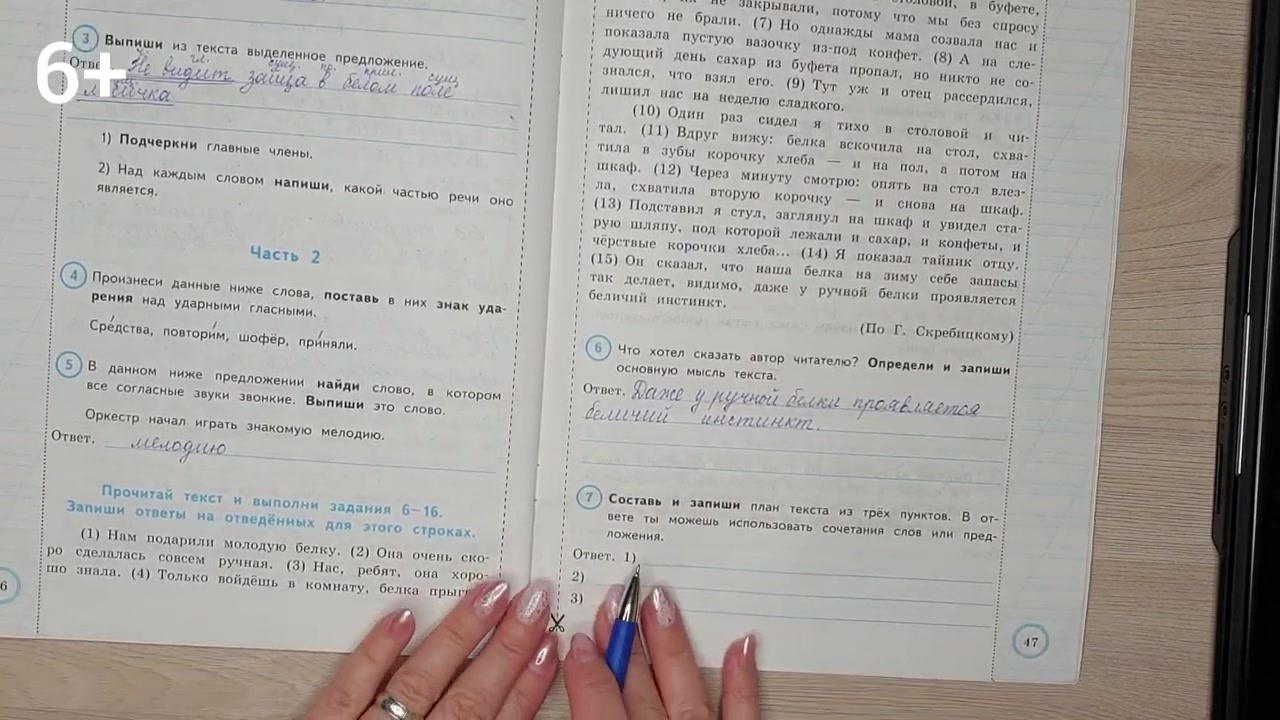 6+
3 Выпиши из текста выделенное предложение.
гл. сущ. пр. прил. сущ.
Не видит зайца в белом поле
1) Подчеркни главные члены.
2) Над каждым словом напиши, какой частью речи оно
является.
Часть 2
4 Произнеси данные ниже слова, поставь в них знак уда-
рения над ударными гласными.
Сре́дства, повтори́м, шофёр, при́няли.
5 В данном ниже предложении найди слово, в котором
все согласные звуки звонкие. Выпиши это слово.
Оркестр начал играть знакомую мелодию.
Ответ. мелодию
Прочитай текст и выполни задания 6–16.
Запиши ответы на отведённых для этого строках.
(1) Нам подарили молодую белку. (2) Она очень ско-
ро сделалась совсем ручная. (3) Нас, ребят, она хоро-
шо знала. (4) Только войдёшь в комнату, белка
6
столовой, в буфете,
не закрывали, потому что мы без спросу
ничего не брали. (7) Но однажды мама созвала нас и
показала пустую вазочку из-под конфет. (8) А на сле-
дующий день сахар из буфета пропал, но никто не со-
знался, что взял его. (9) Тут уж и отец рассердился,
лишил нас на неделю сладкого.
(10) Один раз сидел я тихо в столовой и чи-
тал. (11) Вдруг вижу: белка вскочила на стол, схва-
тила в зубы корочку хлеба — и на пол, а потом на
шкаф. (12) Через минуту смотрю: опять на стол влез-
ла, схватила вторую корочку — и снова на шкаф.
(13) Подставил я стул, заглянул на шкаф и увидел ста-
рую шляпу, под которой лежали и сахар, и конфеты, и
чёрствые корочки хлеба... (14) Я показал тайник отцу.
(15) Он сказал, что наша белка на зиму себе запасы
так делает, видимо, даже у ручной белки проявляется
беличий инстинкт.
(По Г. Скребицкому)
6 Что хотел сказать автор читателю? Определи и запиши
основную мысль текста.
Ответ. Даже у ручной белки проявляется
беличий инстинкт.
7 Составь и запиши план текста из трёх пунктов. В от-
вете ты можешь использовать сочетания слов или пред-
ложения.
Ответ. 1)
2)
3)
47